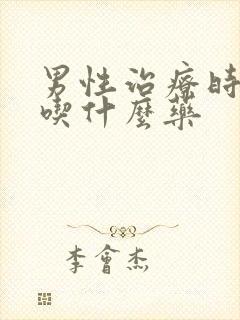 男性治疗时
喫什麼藥
李會杰